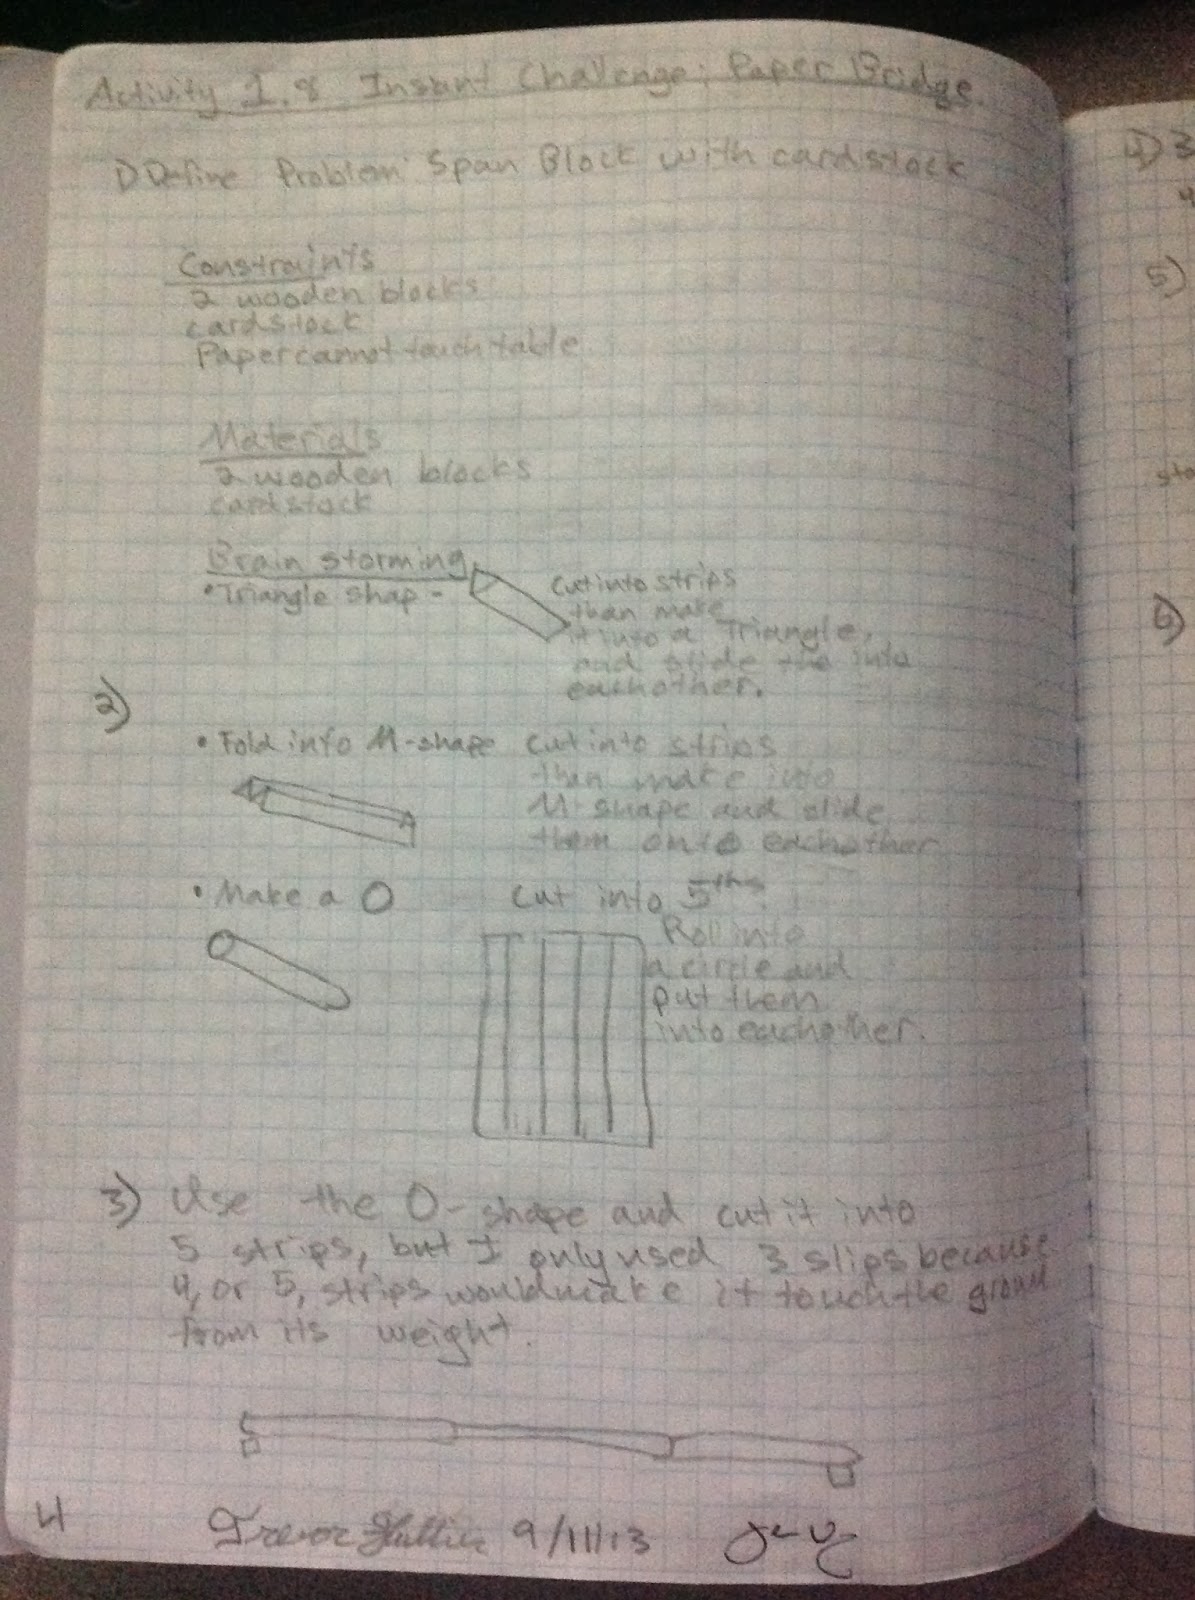 Activity 1.8 Instant Challenge: Paper Bridge.
1) Define Problem: Span Block with cardstock
Constraints
2 wooden blocks
cardstock
Paper cannot touch table
Materials
2 wooden blocks
cardstock
Brain storming
• Triangle shap - Cut into strips
than make
it into a Triangle,
and slide the into
eachother.
2)
• Fold into M-shape cut into strips
then make into
M-shape and slide
them onto eachother
• Make a O Cut into 5ths
Roll into
a circle and
put them
into eachother.
3) Use the O-shape and cut it into
5 strips, but I only used 3 slips because
4, or 5, strips would make it touch the ground
from its weight.
4 Trevor 9/11/13
4) 3
4
5)
sto
6)